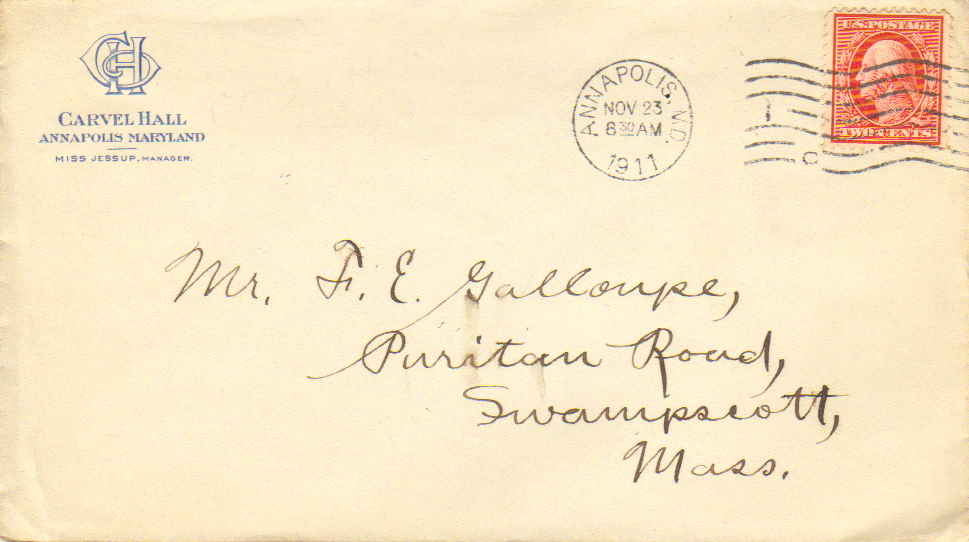 CH
CARVEL HALL
ANNAPOLIS MARYLAND
MISS JESSUP, MANAGER.
ANNAPOLIS, MD.
NOV 23
8 30 AM
1911
U.S. POSTAGE
TWO CENTS
C
Mr. F. E. Galloupe,
Puritan Road,
Swampscott,
Mass.